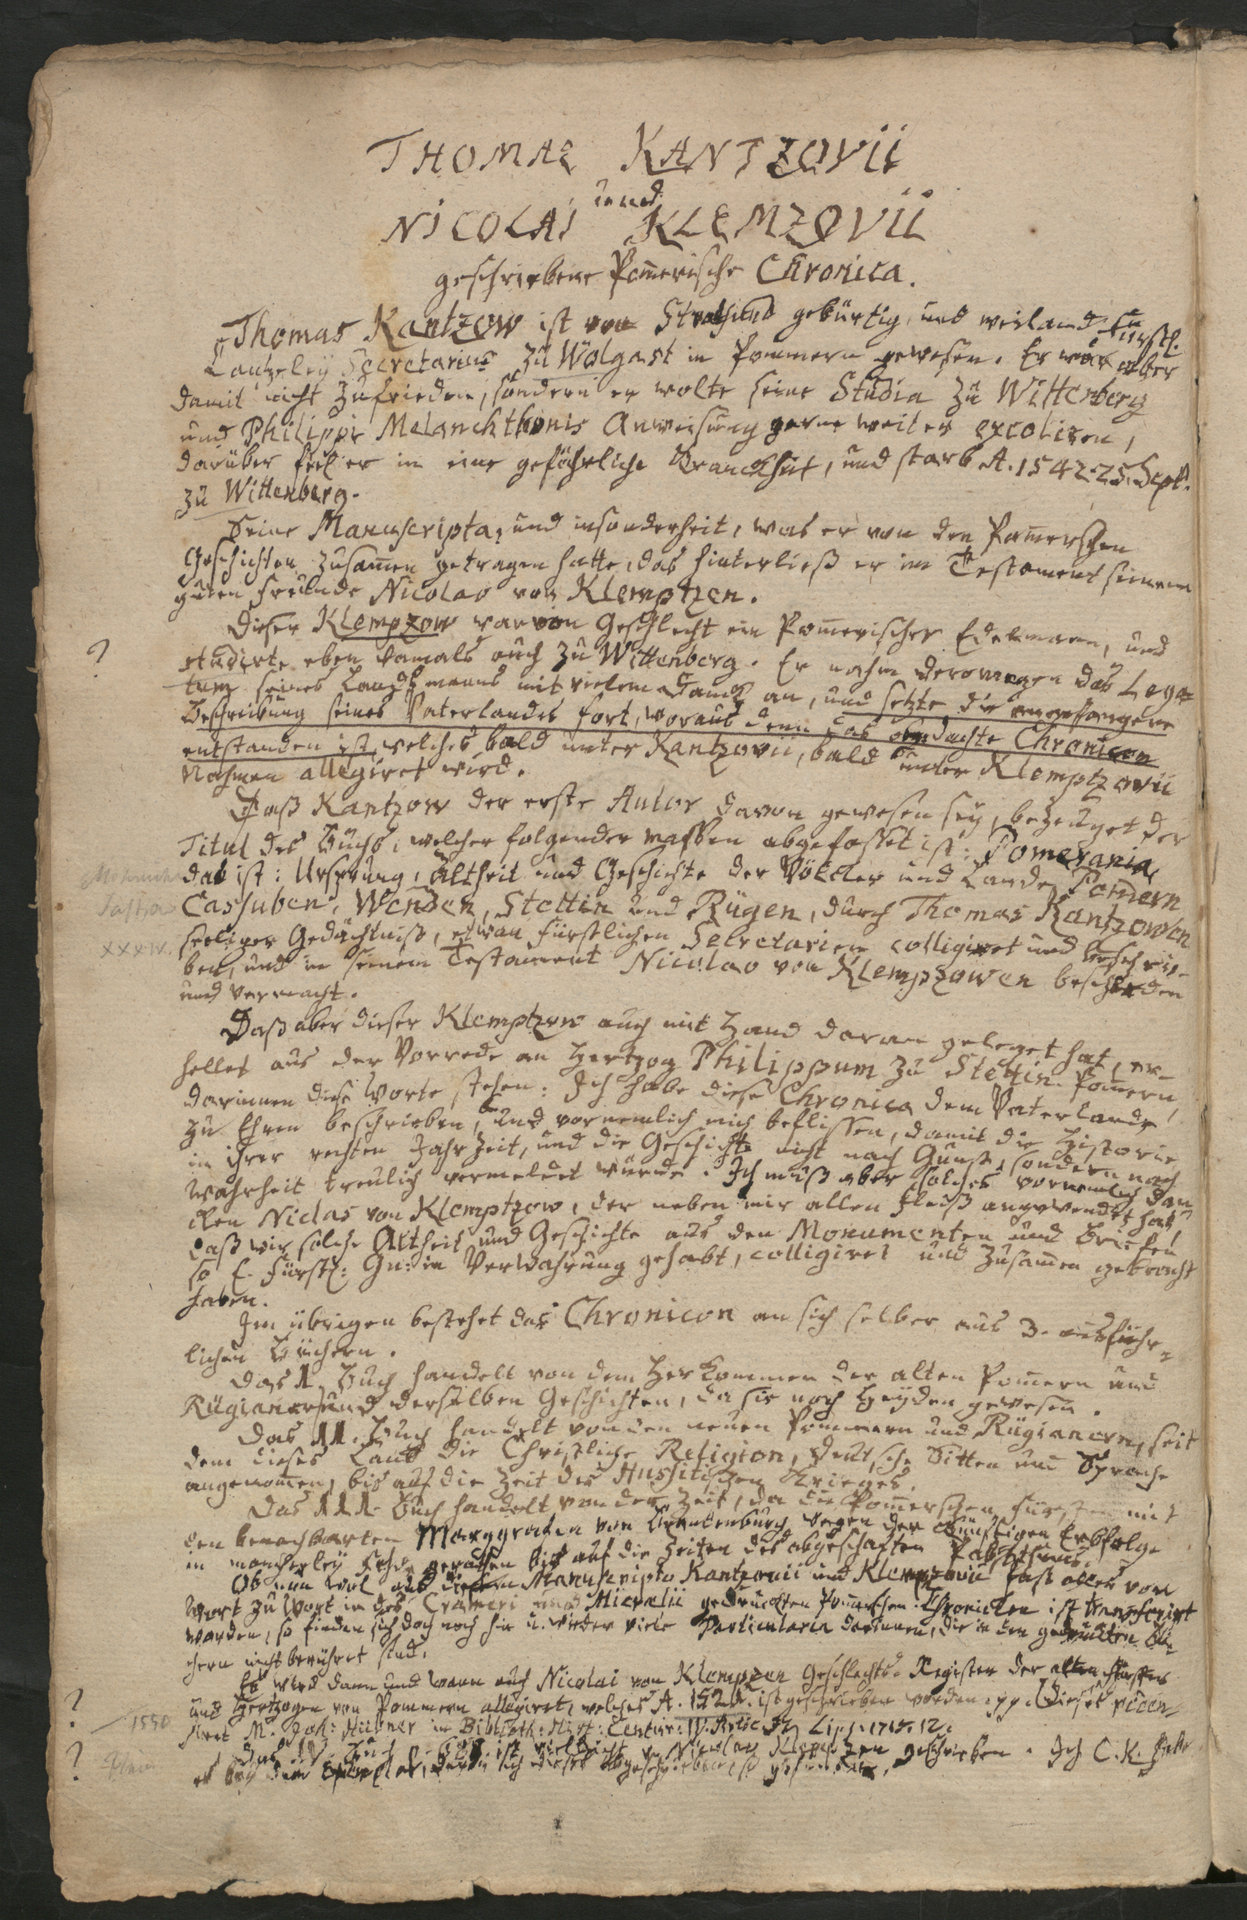 THOMAE KANTZOVII
und
NICOLAI KLEMZOVII
geschriebene Pom̄erische Chronica.
Thomas Kantzow ist von Stralsund gebürtig, und weiland Fürstl.
Cantzeley Secretarius zu Wolgast in Pommern gewesen. Er war aber
damit nicht zufrieden, sondern er wolte seine Studia zu Wittenberg
und Philippi Melanchthonis Anweisung gerne weiter excoliren,
darüber fiel er in eine gefährliche Kranckheit, und starb A. 1542. 25. Sept.
zu Wittenberg.
Seine Manuscripta, und insonderheit, was er von den Pom̄erschen
Geschichten zusam̄en getragen hatte, das hinterließ er im Testament seinem
guten Freunde Nicolao von Klemptzen.
Dieser Klempzow war von Geschlecht ein Pom̄erischer Edelmann, und
? studirte eben damals auch zu Wittenberg. Er nahm derowegen das Lega=
tum seines Landsmanns mit vielem Danck an, und setzte die angefangene
Beschreibung seines Vaterlandes fort, woraus denn das gedachte Chronicon
entstanden ist, welches bald unter Kantzovii, bald unter Klemptzovii
Nahmen allegiret wird.
Daß Kantzow der erste Autor davon gewesen sey, bezeuget der
Titul des Buchs, welcher folgender massen abgefasset ist: Pomerania,
das ist: Ursprung, Altheit und Geschichte der Völcker und Lande Pomern
Cassuben, Wenden, Stettin und Rügen, durch Thomas Kantzowen
xxxiv. seeliger Gedächtniß, etwan Fürstlichen Secretarien colligiret und beschrie=
ben, und in seinem Testament Nicolao von Klempzowen bescheiden
und vermacht.
Daß aber dieser Klemptzow auch mit Hand daran geleget hat, er=
hellet aus der Vorrede an Hertzog Philippum zu Stettin Pom̄ern,
darinnen diese Worte stehen: Ich habe diese Chronica dem Vaterlande
zu Ehren beschrieben, und vornemlich mich beflissen, damit die Historie
in ihrer rechten Jahrzeit, und die Geschichte nicht nach Gunst, sondern nach
Wahrheit treulich vermeldet würde. Ich muß aber solches vornemlich dan=
cken Niclas von Klemptzow, der neben mir allen Fleiß angewendet hat,
daß wir solche Altheit und Geschichte aus den Monumenten und Briefen
so E. Fürstl: Gn: in Verwahrung gehabt, colligiret und zusam̄en gebracht
haben.
Im übrigen bestehet das Chronicon an sich selber aus 3. ausführ=
lichen Büchern.
Das I. Buch handelt von dem Herkommen der alten Pom̄ern und
Rügianer und derselben Geschichten, da sie noch Heyden gewesen.
Das II. Buch handelt von den neuen Pommern und Rügianern, seit
dem dieses Land die Christliche Religion, deutsche Sitten und Sprache
angenom̄en, bis auf die Zeit des Hussitischen Krieges.
Das III. Buch handelt von der Zeit, da die Pom̄erschen Fürsten mit
den benachbarten Marggrafen von Brandenburg wegen der künftigen Erbfolge
in mancherley Fehde gerathen bis auf die Zeiten des abgeschaften Pabstthums.
Ob nun wol aus diesem Manuscripto Kantzovii und Klempzovii fast alles von
Wort zu Wort in des Crameri und Micraelii gedruckten Pom̄erschen Chronicken ist transferirt
worden, so finden sich doch noch hin u. wieder viele Particularia darinnen, die in den gedruckten Bü
chern nicht berühret sind.
Es wird dann und wann auch Nicolai von Klempzen Geschlechts=Register der alten Fürsten
? und Hertzogen von Pommern allegiret, welches A. 152 ist geschrieben worden. pp. Dieses recen=
1550 siret M. Joh: Hübner in Biblioth: Hist: Centur: IV. Artic. Lips. 1715. 12.
? Das IV. Buch ist vielleicht v. Nicolao Klempzen geschrieben. Ich C. K. habe
es bey dem Exemplar, davon ich dieses abgeschrieben, so gefunden.